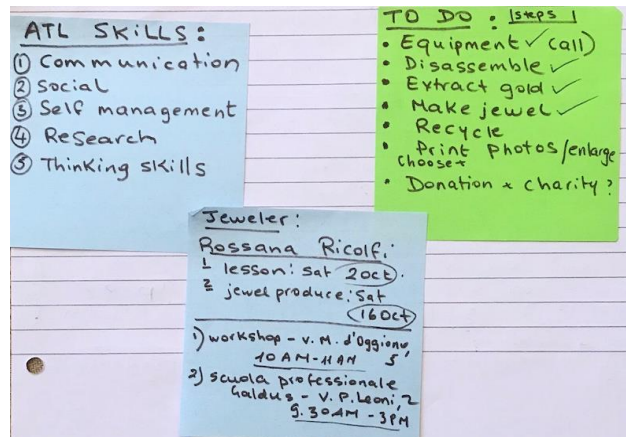 ATL SKILLS:
① Communication
② Social
③ Self management
④ Research
⑤ Thinking skills
TO DO: steps
• Equipment ✓ (call)
• Disassemble ✓
• Extract gold ✓
• Make jewel ✓
• Recycle
• Print photos/enlarge
choose+
• Donation x charity?
Jeweler:
Rossana Ricolfi:
1 lesson: sat 2oct.
2 jewel produce: Sat
16 Oct
1) workshop - V. M. d'Oggiono,
10 AM-11 AM 5
2) scuola professionale
Galdus - V. P. Leoni, 2
9.30AM - 3PM